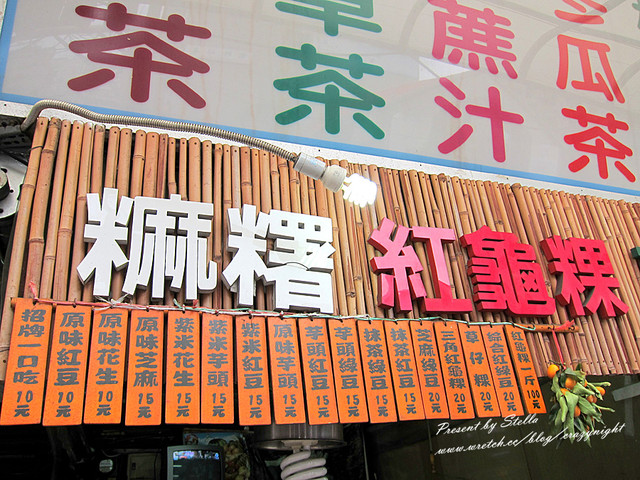 茶
草茶
蕉汁
瓜茶
糜糬
紅龜粿
招牌一口吃10元
原味紅豆10元
原味花生10元
原味芝麻15元
紫米花生15元
紫米芋頭15元
紫米紅豆15元
原味芋頭15元
芋頭紅豆15元
芋頭綠豆15元
抹茶綠豆15元
抹茶紅豆15元
芝麻綠豆20元
三角紅龜粿20元
草仔粿20元
綜合綠豆20元
紅龜粿一斤100元
Present by Stella
www.wretch.cc/blog/crazynight